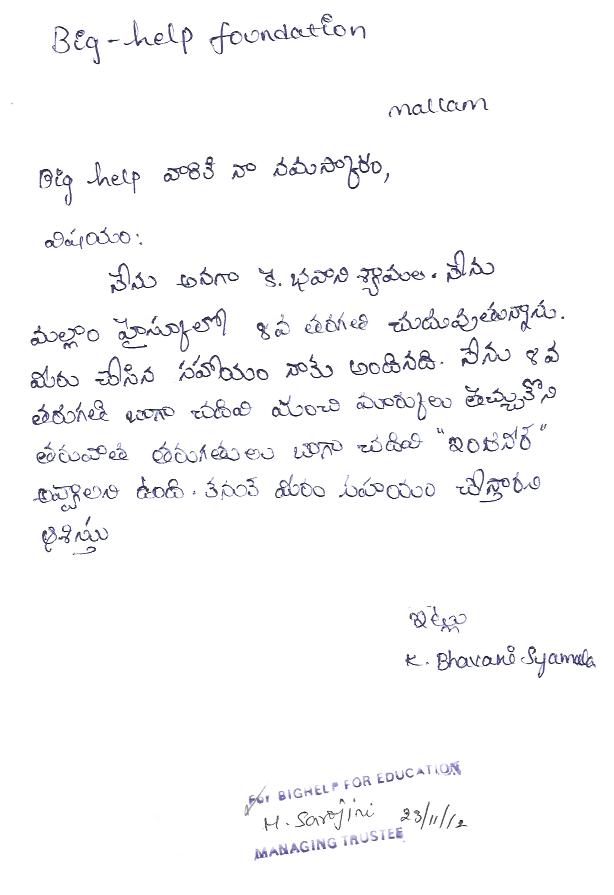 Big-help foundation
mallam
Big help వారికి నా నమస్కారం,
విషయం:
నేను అనగా కె. భవాని శ్యామల. నేను
మల్లాం హైస్కూలో ౪వ తరగతి చదువుతున్నాను.
మీరు చేసిన సహాయం నాకు అందినది. నేను ౪వ
తరగతి బాగా చదివి మంచి మార్కులు తెచ్చుకొని
తరువాత తరుగతులు బాగా చదివి "ఇంజినీర్"
అవ్వాలని ఉంది. మీరు సహాయం చేస్తారని
ఆశిస్తు
ఇట్లు
K. Bhavani Syamala
For BIGHELP FOR EDUCATION
M. Sarojini 23/11/12
MANAGING TRUSTEE